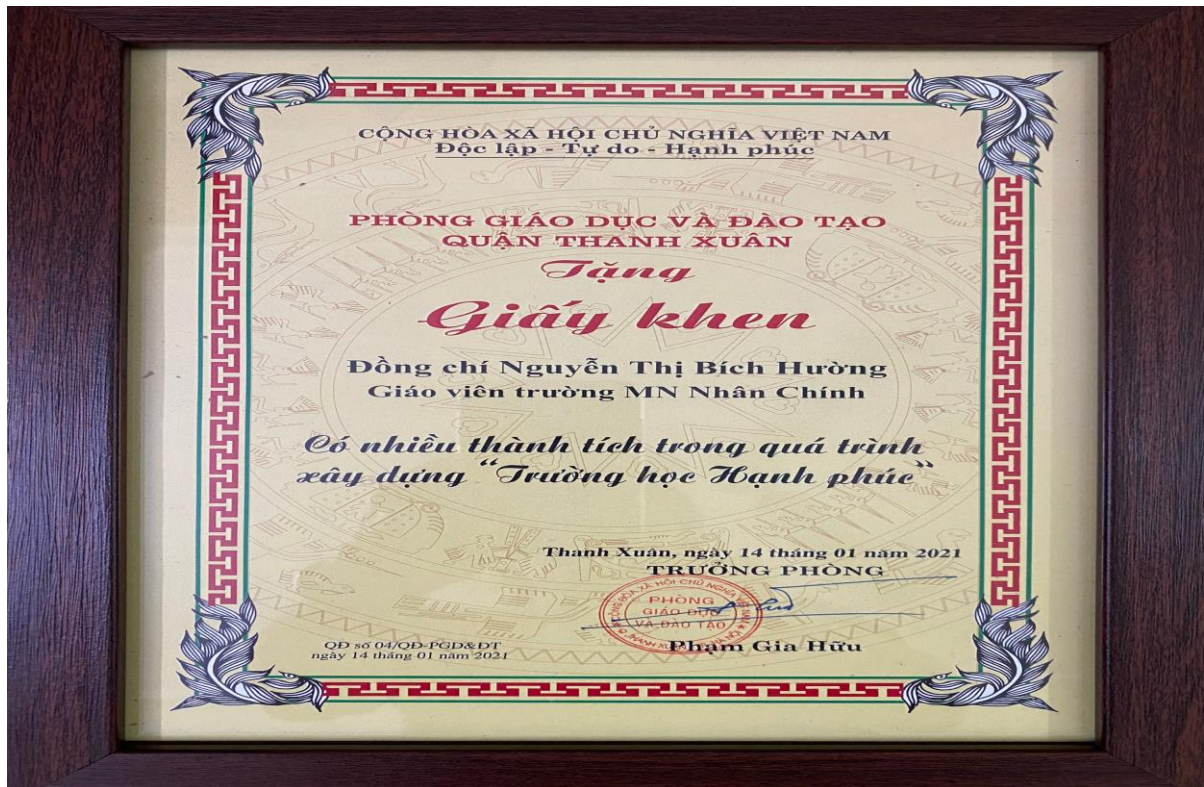 CỘNG HÒA XÃ HỘI CHỦ NGHĨA VIỆT NAM
Độc lập - Tự do - Hạnh phúc
PHÒNG GIÁO DỤC VÀ ĐÀO TẠO
QUẬN THANH XUÂN
Tặng
Giấy khen
Đồng chí Nguyễn Thị Bích Hường
Giáo viên trường MN Nhân Chính
Có nhiều thành tích trong quá trình
xây dựng "Trường học Hạnh phúc"
Thanh Xuân, ngày 14 tháng 01 năm 2021
TRƯỞNG PHÒNG
PHÒNG
GIÁO DỤC
VÀ ĐÀO TẠO
Phạm Gia Hữu
QĐ số 04/QĐ-PGD&ĐT
ngày 14 tháng 01 năm 2021